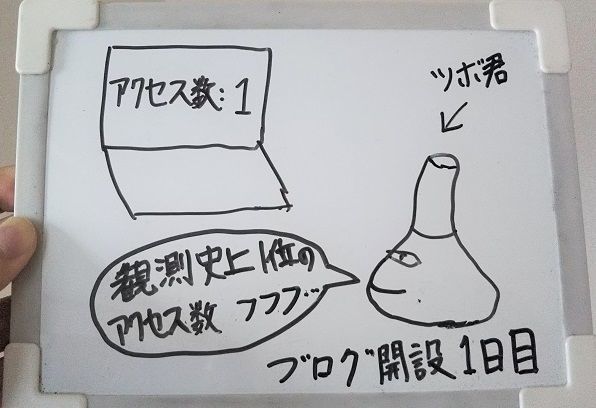 アクセス数:1
ツボ君
観測史上1位の
アクセス数 フフフ…
ブログ開設1日目